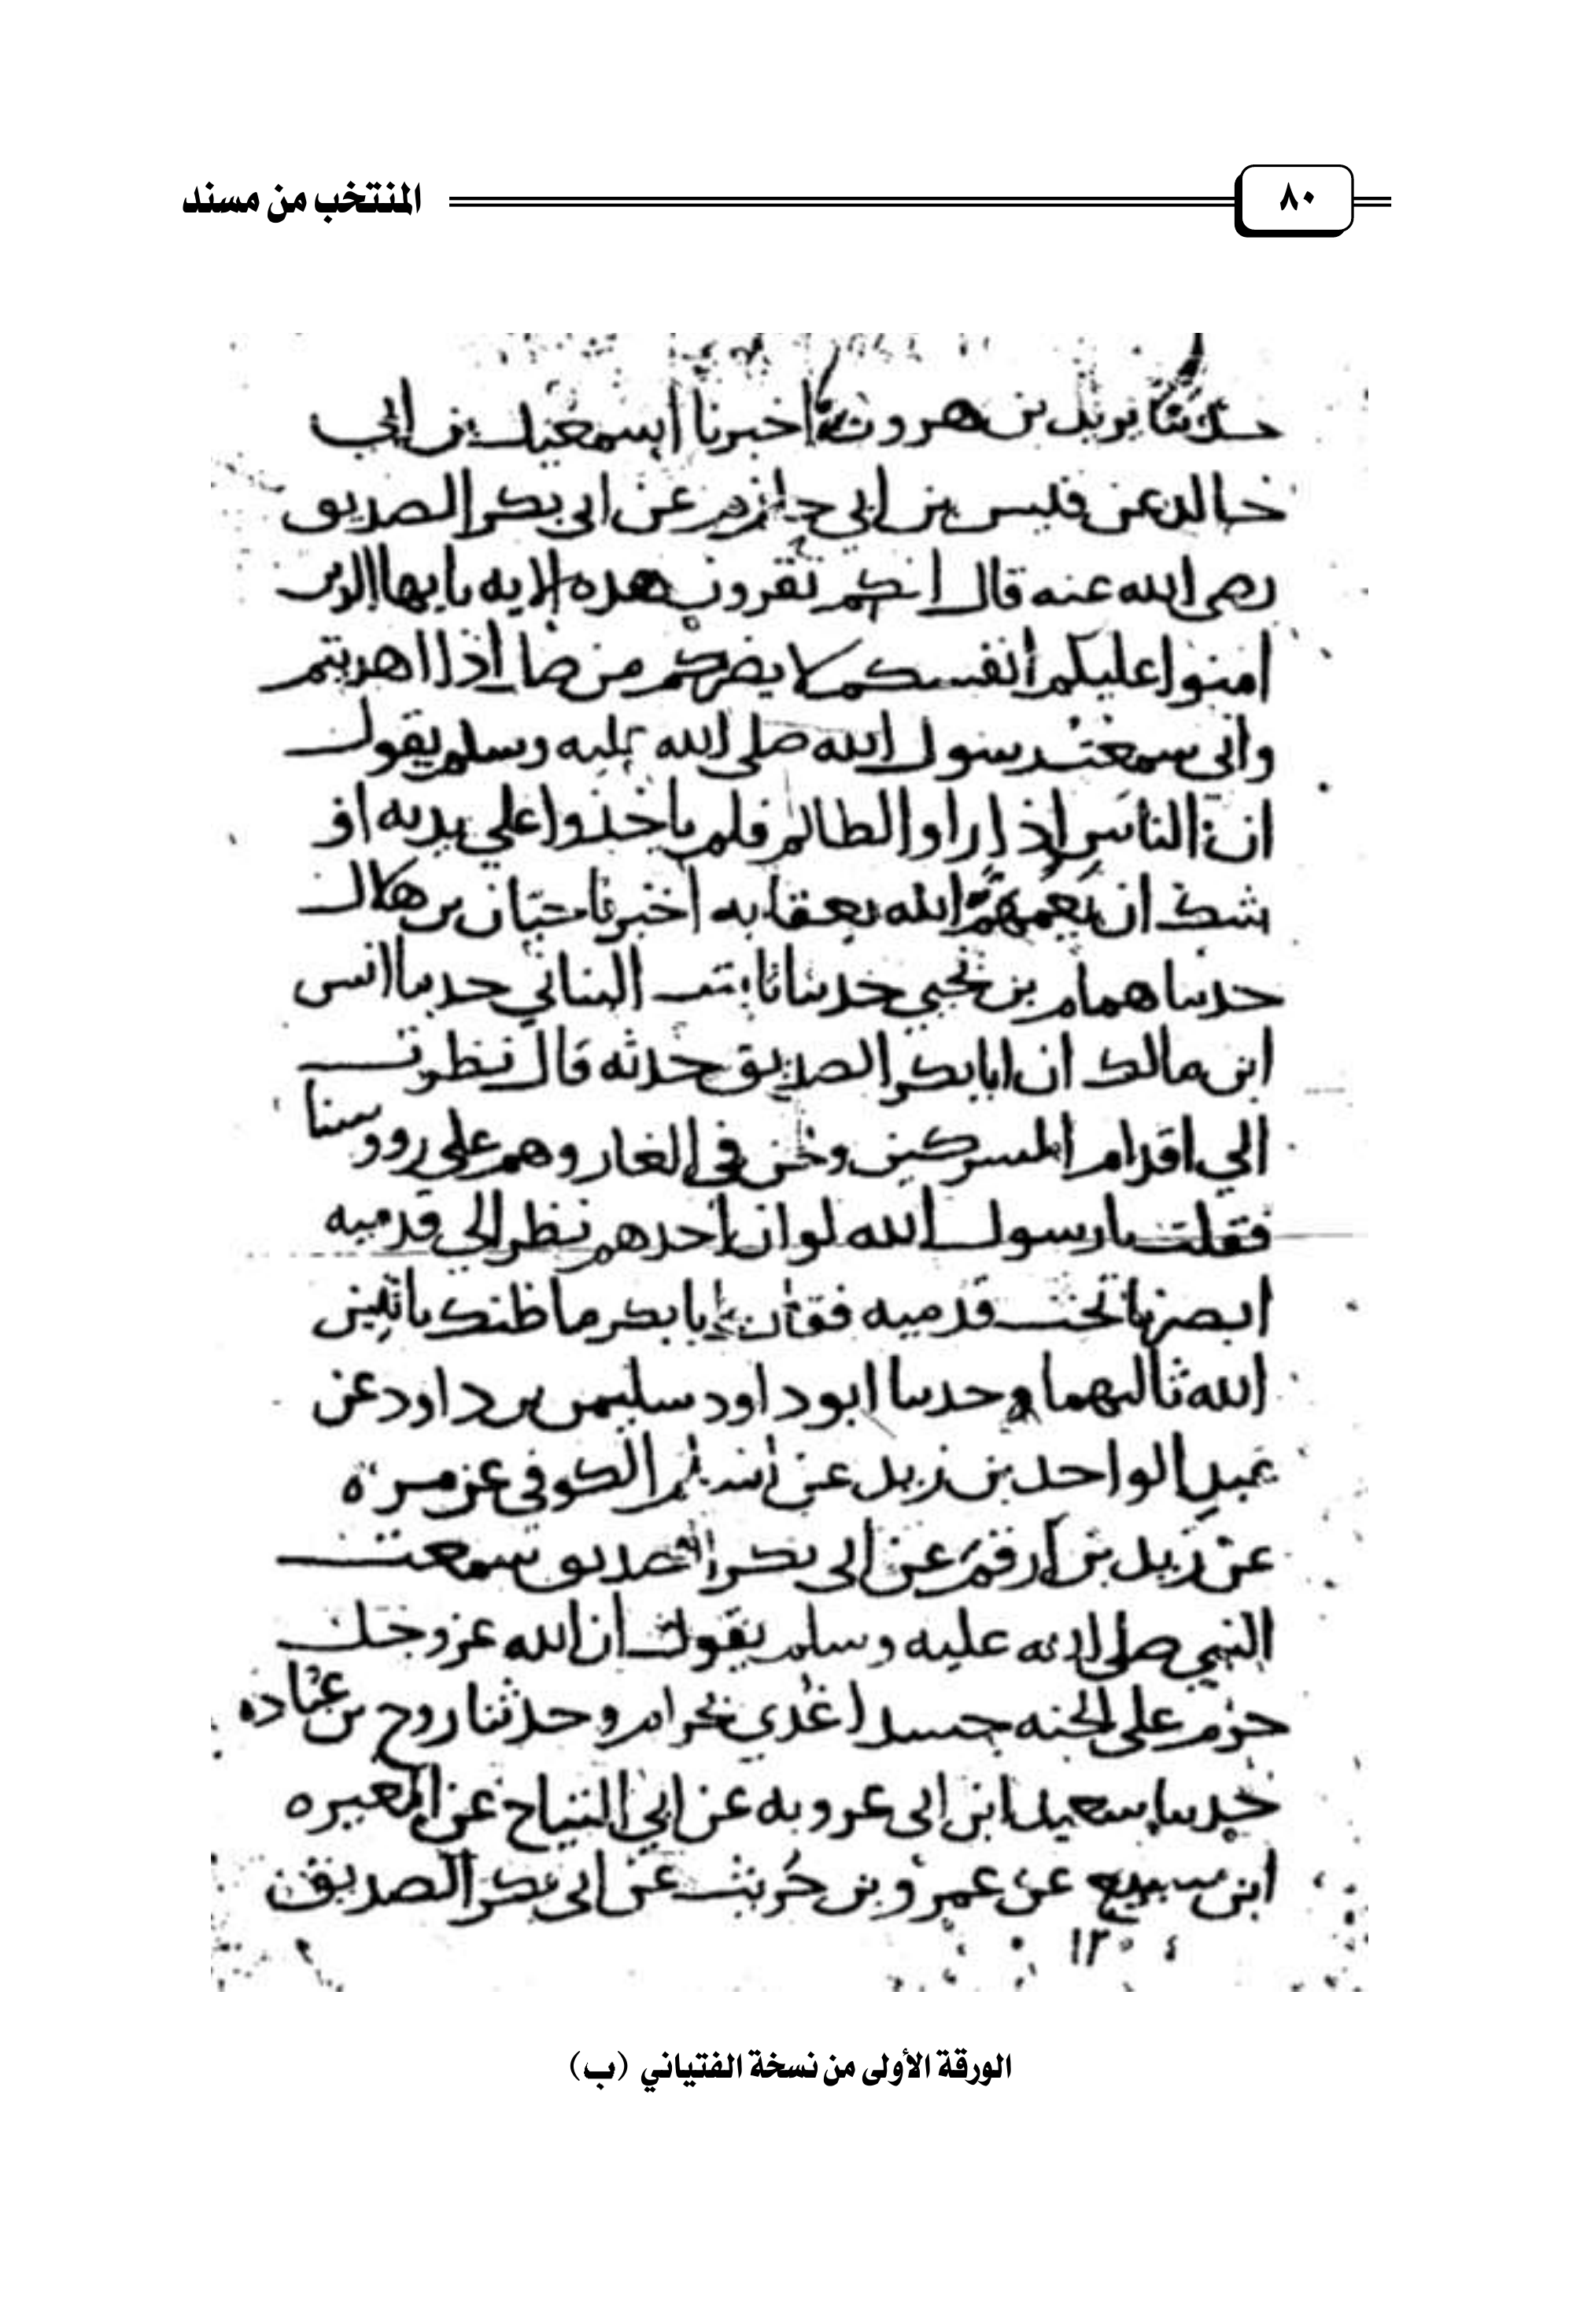 ٨٠ المنتخب من مسند
حدثنا يزيد بن هرون اخبرنا اسمعيل بن ابي
خالد عن قيس بن ابي حازم عن ابي بكر الصديق
رضي الله عنه قال انكم تقرون هذه الايه يايها الذين
امنوا عليكم انفسكم لا يضركم من ضل اذا اهديتم
واني سمعت رسول الله صلى الله عليه وسلم يقول
ان الناس اذا راو الظالم فلم ياخذوا علي يديه او
شك ان يعمهم الله بعقابه اخبرنا حبان بن هلال
حدثنا همام بن يحيي حدثنا ثابت البناني حدثنا انس
ابن مالك ان ابا بكر الصديق حدثه قال نظرت
الي اقدام المشركين ونحن في الغار وهم علي روسنا
فقلت يا رسول الله لو ان احدهم نظر الي قدميه
ابصرنا تحت قدميه فقال يا ابا بكر ما ظنك باثنين
الله ثالثهما وحدثنا ابو داود سليمن بن داود عن
عبد الواحد بن زيد عن اسلم الكوفي عن مرة
عن زيد بن ارقم عن ابي بكر الصديق سمعت
النبي صلى الله عليه وسلم يقول ان الله عز وجل
حرم على الجنه جسدا غذي بحرام وحدثنا روح بن عباده
حدثنا سعيد ابن ابي عروبه عن ابي التياح عن المغيره
ابن سبيع عن عمرو بن حريث عن ابي بكر الصديق
الورقة الأولى من نسخة الفتياني (ب)